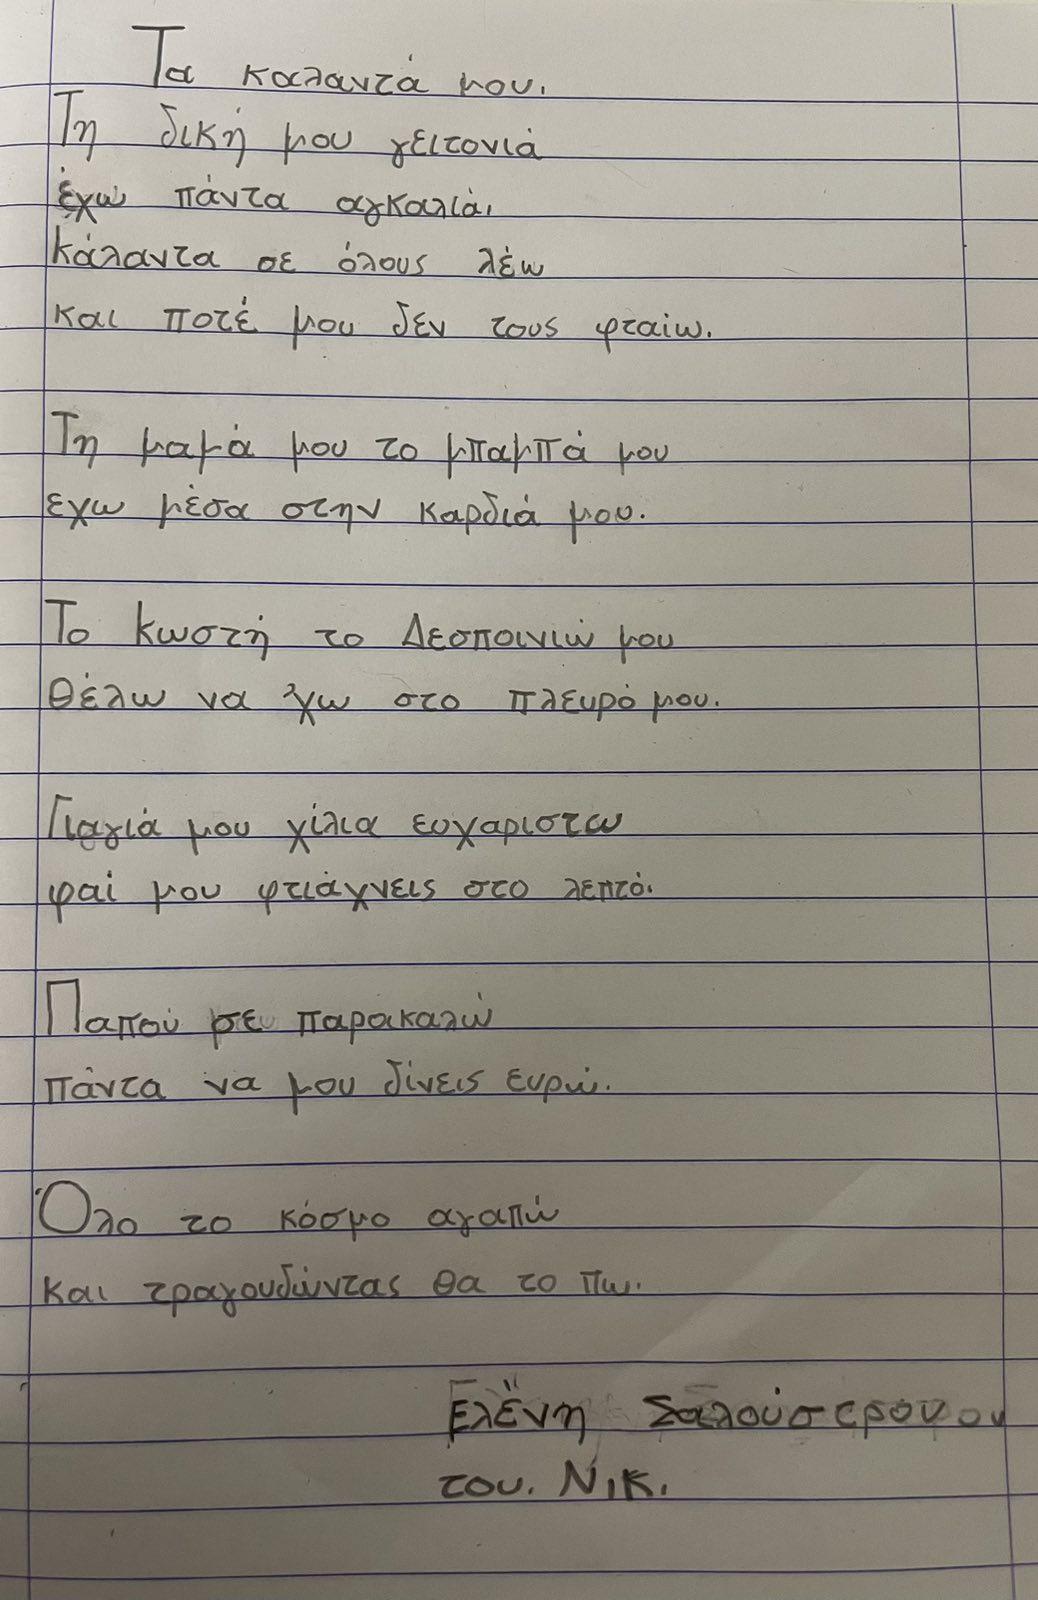 Τα καλαντά μου.
Τη δική μου γειτονιά
έχω πάντα αγκαλιά.
κάλαντα σε όλους λέω
και ποτέ μου δεν τους φταίω.
Τη μαμά μου το μπαμπά μου
εχω μέσα στην καρδιά μου.
Το Κωστή το Δεσποινιώ μου
θέλω να 'χω στο πλευρό μου.
Γιαγιά μου χίλια ευχαριστω
φαί μου φτιάχνεις στο λεπτό.
Παπού σε παρακαλώ
πάντα να μου δίνεις ευρώ.
Όλο το κόσμο αγαπώ
και τραγουδώντας θα το πω.
Ελένη
του. Νικ.